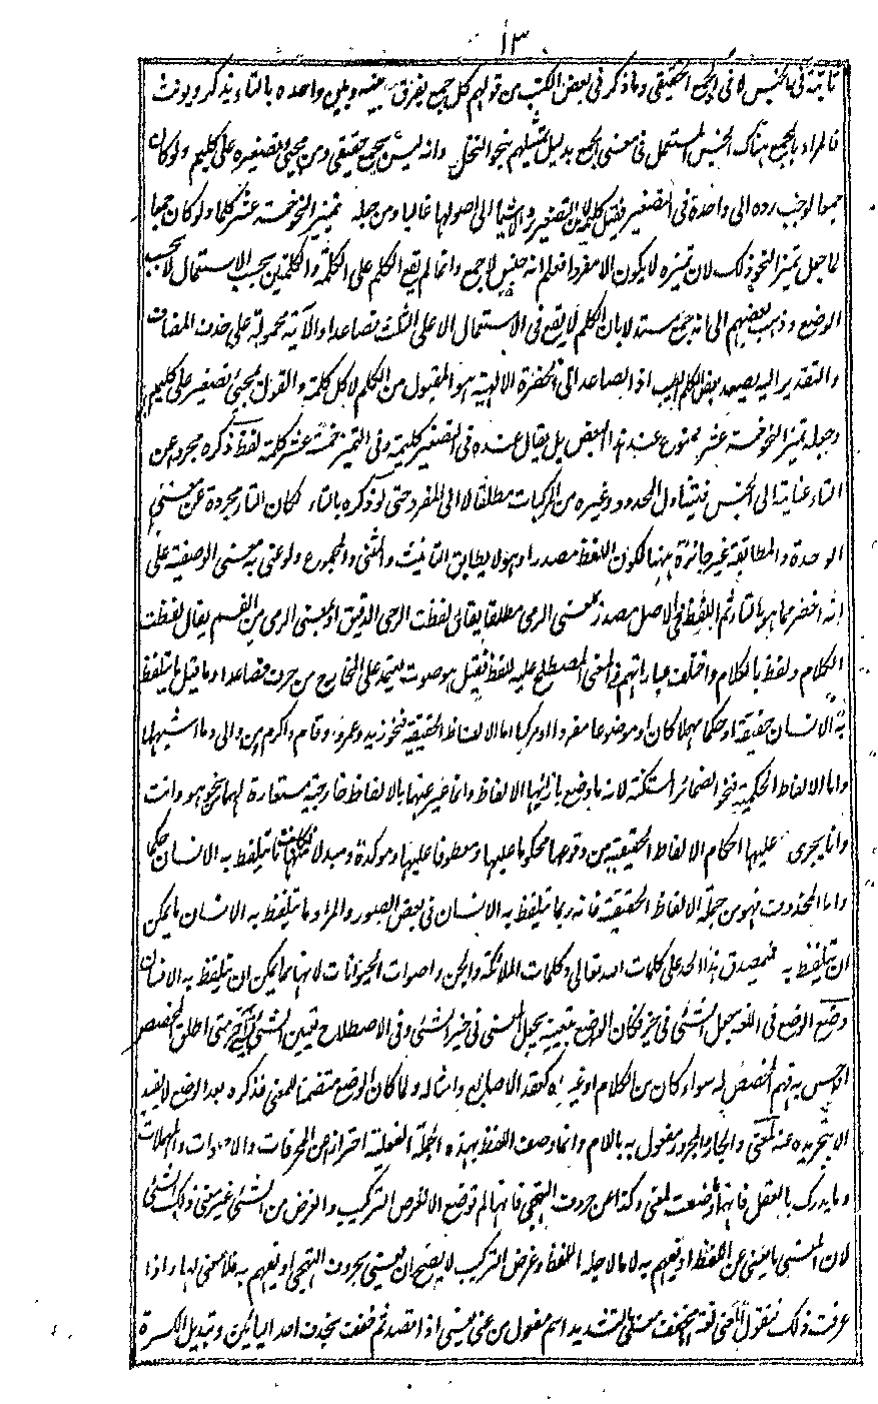 ١٣
ثابتة فى الجنس لا فى الجمع الحقيقى وما ذكر فى بعض الكتب من قولهم كل جمع يفرق بينه وبين واحده بالتاء يذكر ويونث
فالمراد بالجمع هناك الجنس المستعمل فى معنى الجمع بدليل تمثيلهم بنحو النخل وانه ليس بجمع حقيقى ومن مجيئ تصغيره على كليم ولو كان
جمعا لوجب رده الى واحدة فى التصغير فيقيل كليمة لان التصغير رد الاشيا الى اصولها غالبا ومن جعله تميز النحو خمسة عشر كلما ولو كان جمعا
لما جعل تميز النحو ذلك لان تميزه لا يكون الا مفردا فعلم انه جنس لا جمع وانما لم يقع الكلم على الكلمة والكلمتين بحسب الاستعمال لا بحسب
الوضع وذهب بعضهم الى انه جمع مستدلا بان الكلم لا يقع فى الاستعمال الا على الثلث فصاعدا والآية محمولة على حذف المضاف
والتقدير اليه يصعد بعض الكلم الطيب اذ الصاعد الى الحضرة الالهية هو المقبول من الكلم لا كل كلمة والقول بمجيئ تصغيره على كليم
وجعله تميز النحو خمسة عشر ممنوع عند هذا البعض بل يقال عنده فى التصغير كليمة وفى التميز خمسة عشر كلمة لفظ ذكره مجردا عن
التاء عناية الى الجنس فيتناول المحدود وغيره من المركبات مطلقا لا الى المفرد حتى لو ذكره بالتاء لكان التاء مجردة عن معنى
الوحدة والمطابقة غير جائزة ههنا لكون اللفظ مصدرا وهو لا يطابق التانيث والمثنى والمجموع ولو عنى به معنى الوصفية على
انه اخصر مما هو بالتاء ثم اللفظ فى الاصل مصدر بمعنى الرمى مطلقا يقال لفظت الرحى الدقيق او بمعنى الرمى من الفم يقال لفظت
الكلام ولفظ بالكلام واختلف عباراتهم فى المعنى المصطلح عليه للفظ فقيل هو صوت يعتمد على المخارج من حرف فصاعدا وما قيل ما يتلفظ
به الانسان حقيقة او حكما مهملا كان او موضوعا مفردا او مركبا اما الالفاظ الحقيقية فنحو زيد وعمرو وقام واكرم ومن والى وما اشبهها
واما الالفاظ الحكمية فنحو الضمائر المستكنة لانه ما وضع بازائها الالفاظ وانما عبر عنها بالالفاظ خارجية مستعارة لها من نحو هو وانت
وانما يجرى عليها احكام الالفاظ الحقيقية من وقوعها محكوما عليها ومعطوفا عليها وموكدة ومبدلا منها مما يتلفظ به الانسان حكما
واما المحذوف فهو من جملة الالفاظ الحقيقية فانه ربما يتلفظ به الانسان فى بعض الصور والمراد ما يتلفظ به الانسان ما يمكن
ان يتلفظ به فيصدق هذا الحد على كلمات الله تعالى وكلمات الملائكة والجن واصوات الحيوانات لانها مما يمكن ان يتلفظ به الانسان
وضع الوضع فى اللغة جعل الشئ فى حيز فكان الواضع بتعيينه يجعل المعنى فى حيز الشئ وفى الاصطلاح تعيين الشئ للشئ متى اطلق المخصص
او احس به فهم المخصص له سواء كان من الكلام او غيره كعقد الاصابع وامثاله ولما كان الوضع متضمنا للمعنى فذكره بعد الوضع لا يفيد
الا بتجريده عنه لمعنى والجار والمجرور مفعول به باللام وانما وصف اللفظ بهذه الجملة الفعلية احترازا عن المحرفات والاصوات والمهملات
وما يدرك بالعقل فانها ما وضعت لمعنى وكذا عن حروف التهجى فانها لم توضع الا لغرض التركيب والغرض من الشئ غير معنى ذلك الشئ
لان المعنى ما يعنى عن اللفظ او يفهم به لا ما لاجله اللفظ وغرض التركيب لا يصح ان يعنى بحروف التهجى او يفهم به فلا معنى لها واذا
عرفت ذلك فنقول المعنى لغة المخفف معنى بالتشديد اسم مفعول من عنى يعنى اذا قصد ثم خفف بحذف احد اليائين وتبديل الكسرة